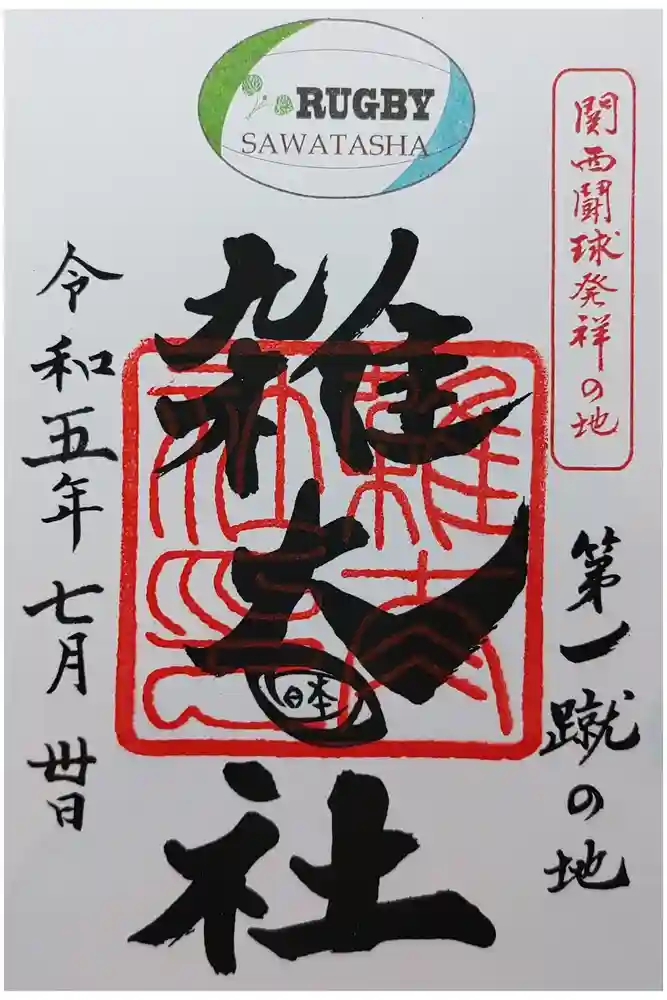 RUGBY
SAWATASHA
関西闘球発祥の地
第一蹴の地
雑太社
日本
令和五年七月卅日